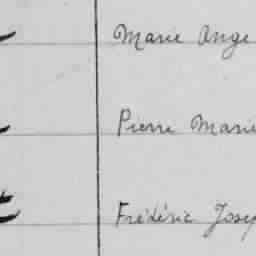 Marie Ange
Pierre Marie
Frédéric Josep